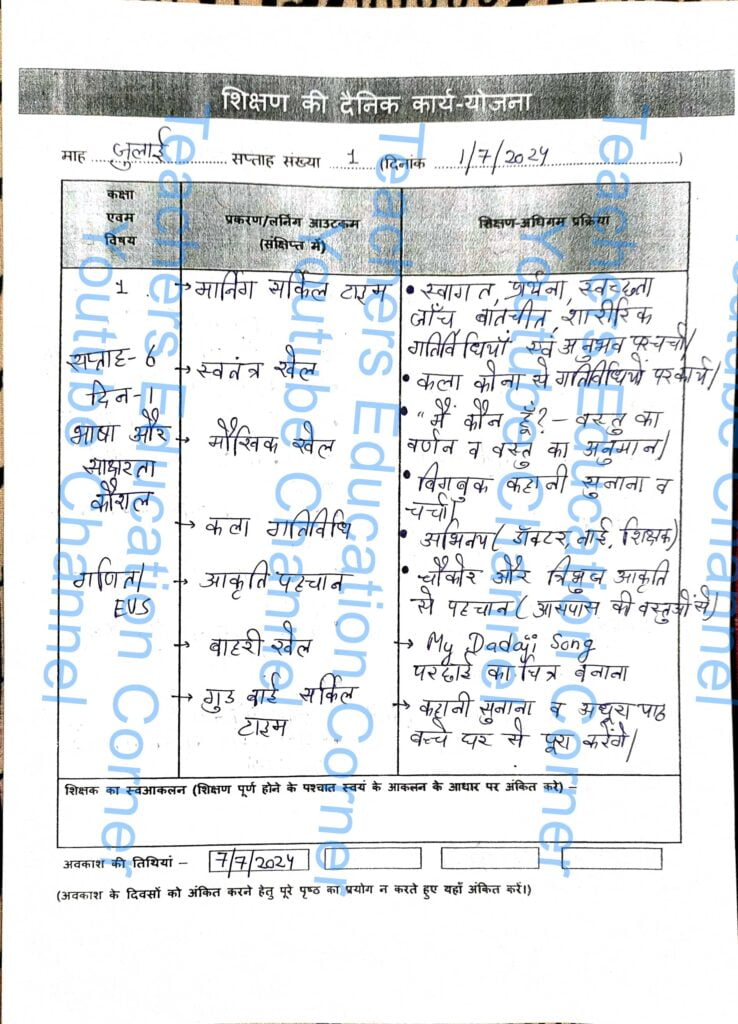 शिक्षण की दैनिक कार्य-योजना
माह ... जुलाई ... सप्ताह संख्या ... 1 ... (दिनांक ... 1/7/2024 ...)
कक्षा एवम विषय
प्रकरण/लर्निंग आउटकम (संक्षिप्त में)
शिक्षण-अधिगम प्रक्रिया
1.
→ मार्निंग सर्किल टाइम
• स्वागत, प्रर्थना, स्वच्छता
जाँच, बातचीत, शारीरिक
गतिविधियाँ एवं अनुभव पर चर्चा/
सप्ताह- 6
दिन-1
→ स्वतंत्र खेल
• कला कोना से गतिविधियों पर कार्य/
भाषा और
साक्षरता
कौशल
→ मौखिक खेल
• "मैं कौन हूँ? - वस्तु का
वर्णन व वस्तु का अनुमान/
• बिगबुक कहानी सुनाना व
चर्चा/
→ कला गतिविधि
• अभिनय ( डॉक्टर, नाई, शिक्षक)
गणित/
EVS
→ आकृति पहचान
• चौकोर और त्रिभुज आकृति
से पहचान ( आसपास की वस्तुओं से)
→ बाहरी खेल
→ My Dadaji Song
परछाई का चित्र बनाना
→ गुड बाई सर्किल
टाइम
→ कहानी सुनाना व अधूरा पाठ
बच्चे घर से पूरा करेंगे/
शिक्षक का स्वआकलन (शिक्षण पूर्ण होने के पश्चात स्वयं के आकलन के आधार पर अंकित करे) -
अवकाश की तिथियां - 7/7/2024
(अवकाश के दिवसों को अंकित करने हेतु पूरे पृष्ठ का प्रयोग न करते हुए यहाँ अंकित करें।)
Teachers Education Corner
Youtube Channel
Teachers Education Corner
Youtube Channel
Teachers Education Corner
Youtube Channel